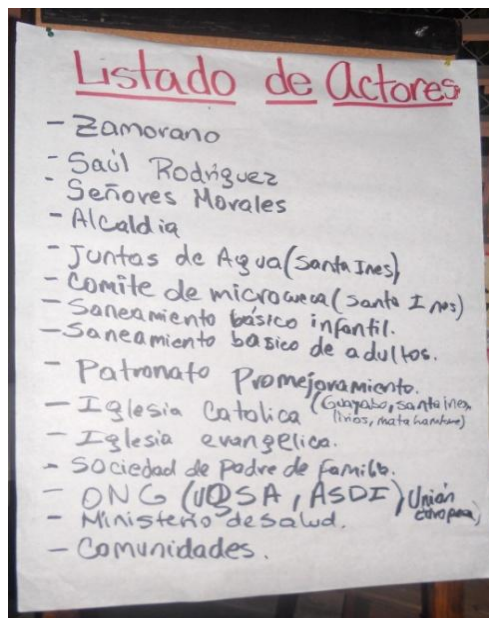 Listado de actores
- Zamorano
- Saúl Rodriguez
- Señores Morales
- Alcaldia
- Juntas de Agua (Santa Ines)
- Comite de microcueca (Santa Ines)
- Saneamiento básico infantil.
- Saneamiento basico de adultos.
- Patronato Promejoramiento.
- Iglesia Catolica (Guayabo, santa ines,
lirios, mata hambre)
- Iglesia evangelica.
- Sociedad de Padre de familia.
- ONG ( , ASDI) Unión
Europea)
- Ministerio de salud.
- Comunidades.